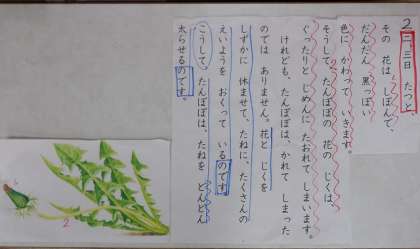 2
二、三日 たつと、
その 花は しぼんで、
だんだん 黒っぽい
色に かわって いきます。
そうして、たんぽぽの 花の じくは、
ぐったりと じめんに たおれて しまいます。
けれども、たんぽぽは、かれて しまった
のでは ありません。花と じくを
しずかに 休ませて、たねに、たくさんの
えいようを おくって いるのです。
こうして、たんぽぽは、たねを どんどん
太らせるのです。
2